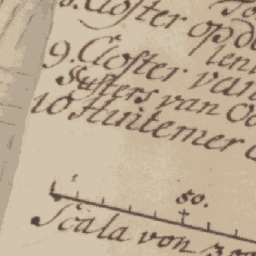 8. Closter op de
len
9. Closter van
Susters van
10 Hintemer
50.
Scala von